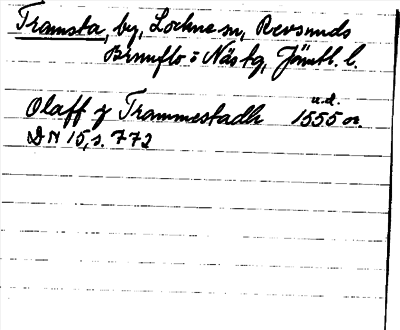 Tramsta, by, Lockne sn, Revsunds
Brunflo o Näs tg, Jämtl. l.
Olaff y Trammestadh u.d. 1555 or.
DN 15, s. 772